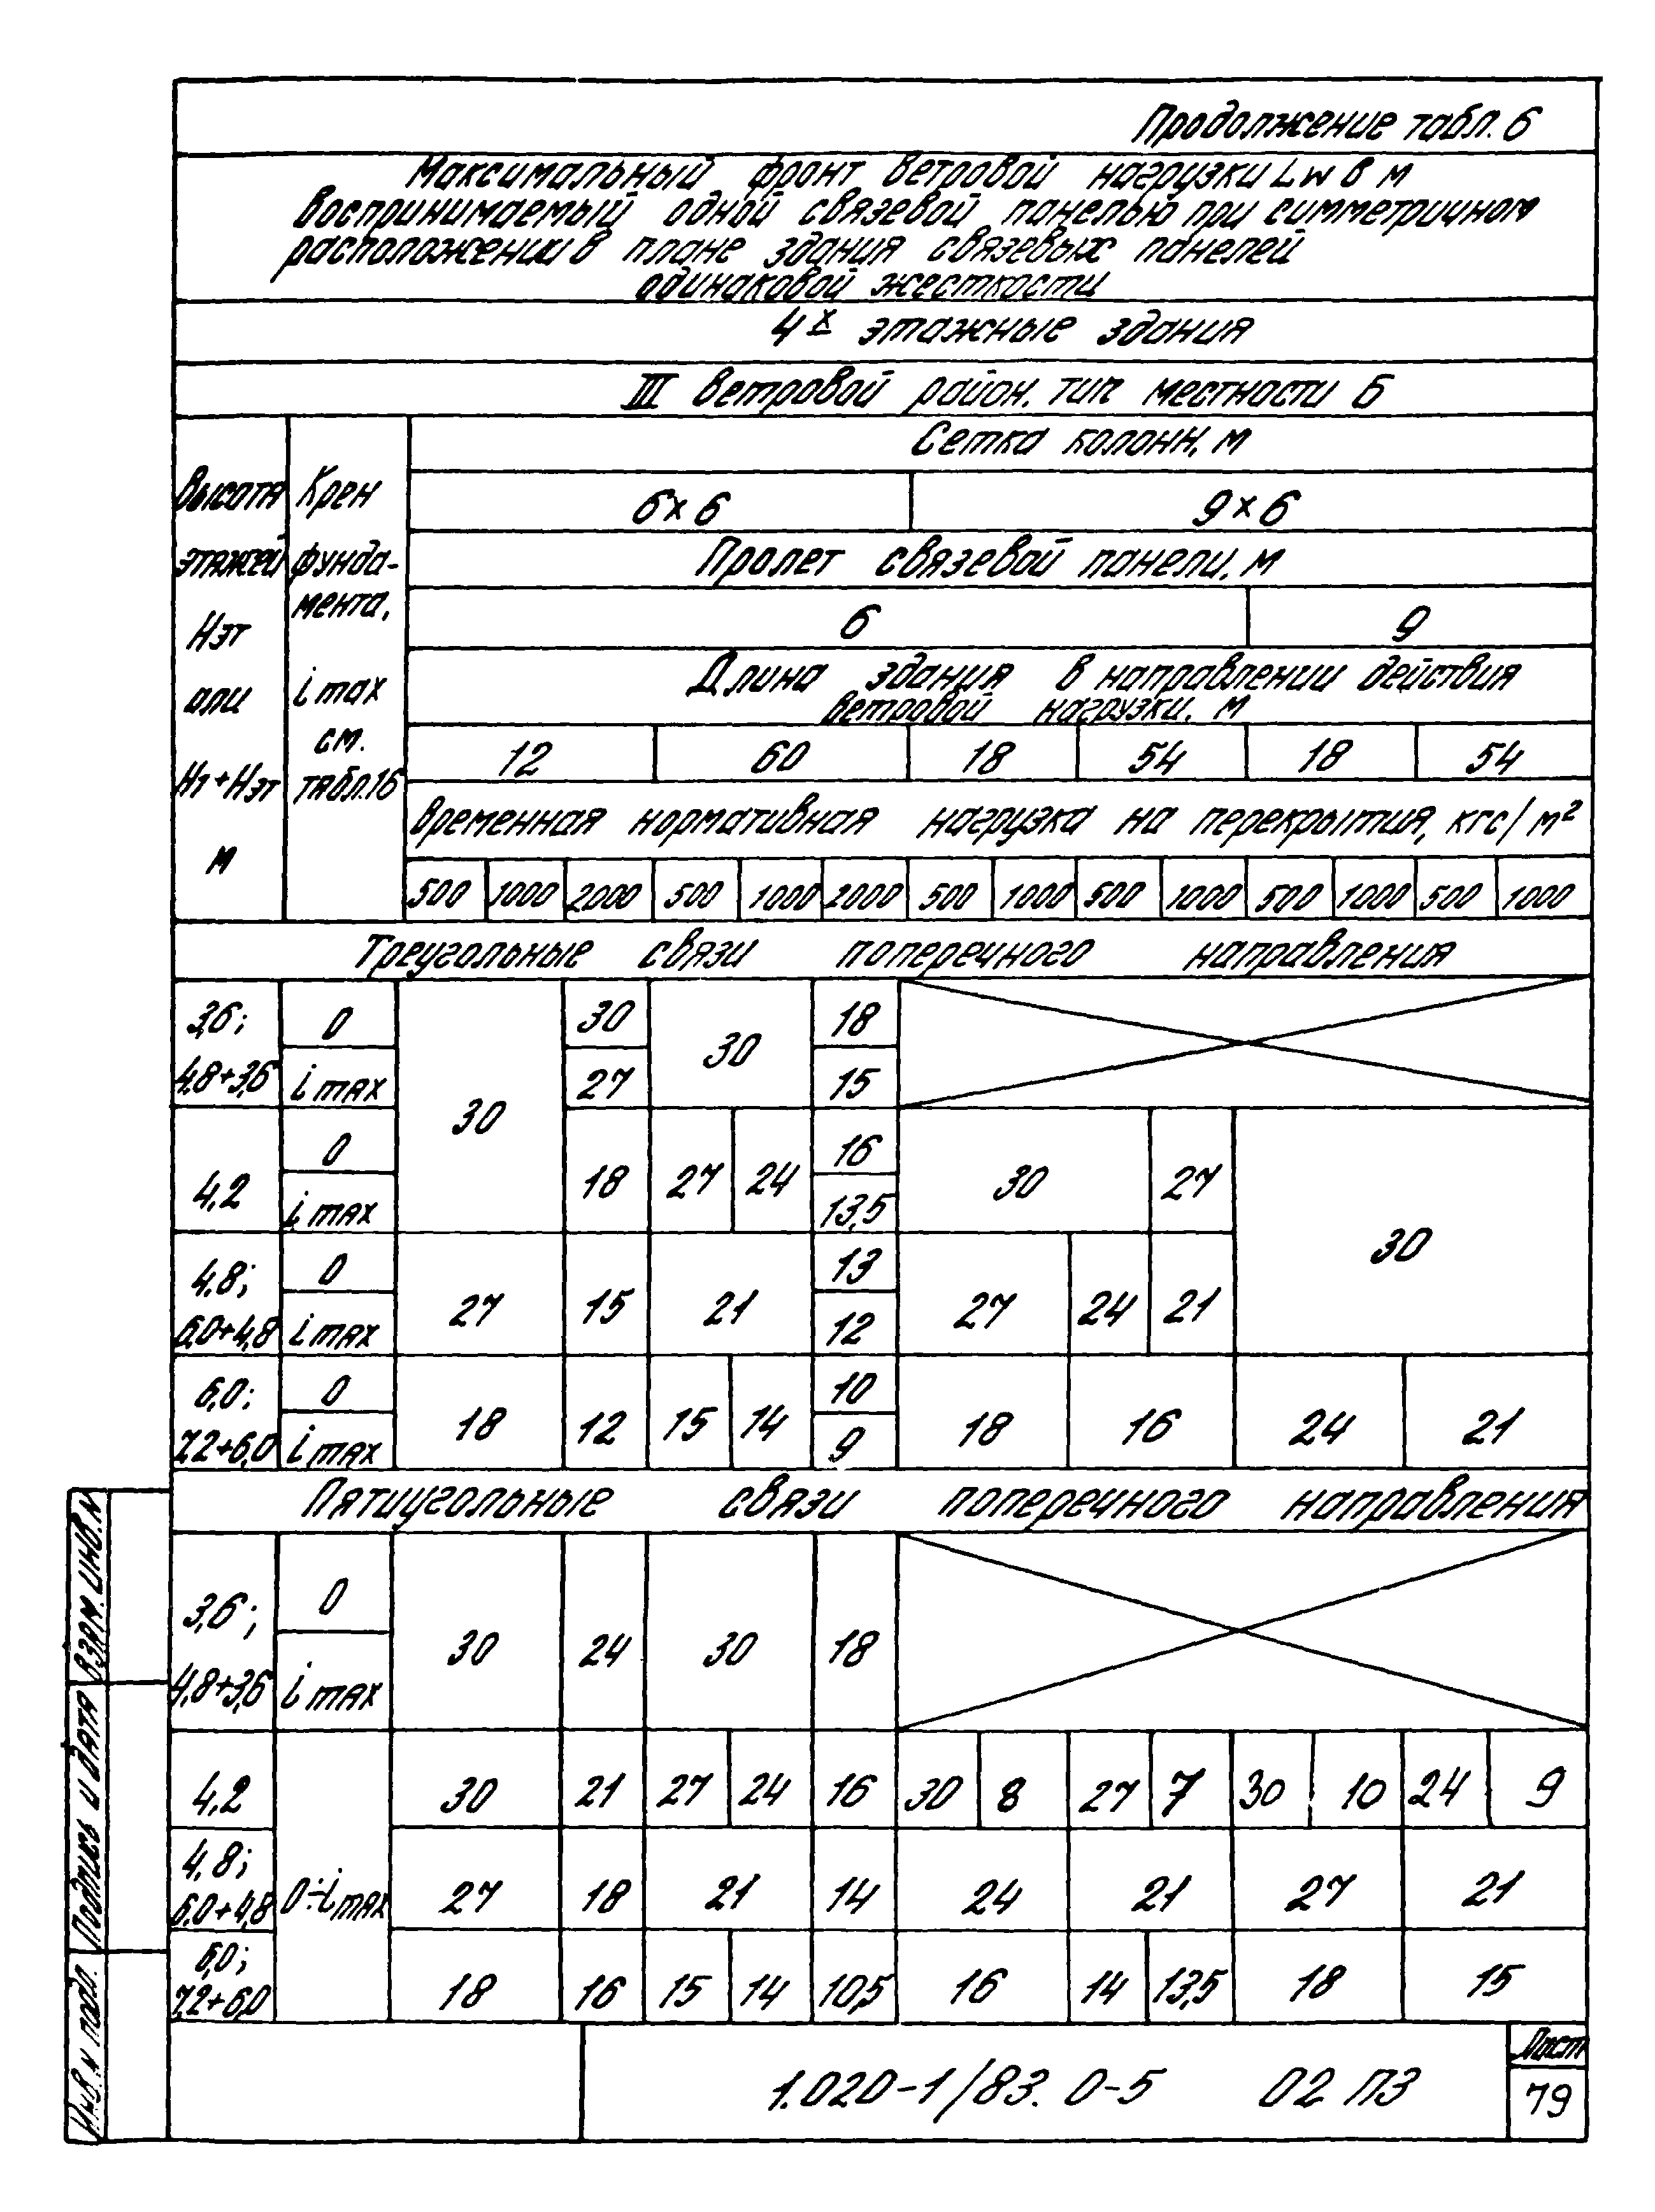 Продолжение табл. 6
Максимальный фронт ветровой нагрузки Lw в м
воспринимаемый одной связевой панелью при симметричном
расположении в плане здания связевых панелей
одинаковой жесткости
4х этажные здания
III ветровой район, тип местности Б
Высота этажей Нэт или Н1+Нэт м
Крен фунда-мента, imax см. табл.16
Сетка колонн, м
6×6 9×6
Пролет связевой панели, м
6 9
Длина здания в направлении действия
ветровой нагрузки, м
12 60 18 54 18 54
Временная нормативная нагрузка на перекрытия, кгс/м²
500 1000 2000 500 1000 2000 500 1000 500 1000 500 1000 500 1000
Треугольные связи поперечного направления
3,6; 0 30 18
30
4,8+3,6 imax 27 15
30
0 16
4,2 18 27 24 30 27
imax 13,5
30
4,8; 0 13
27 15 21 27 24 21
6,0+4,8 imax 12
6,0; 0 10
18 12 15 14 18 16 24 21
7,2+6,0 imax 9
Пятиугольные связи поперечного направления
3,6; 0
30 24 30 18
4,8+3,6 imax
4,2 30 21 27 24 16 30 8 27 7 30 10 24 9
4,8;
6,0+4,8 0÷imax 27 18 21 14 24 21 27 21
6,0;
7,2+6,0 18 16 15 14 10,5 16 14 13,5 18 15
Взам. инв. N
Подпись и дата
Инв. N подл.
1.020-1/83. 0-5 02 ПЗ
Лист
79